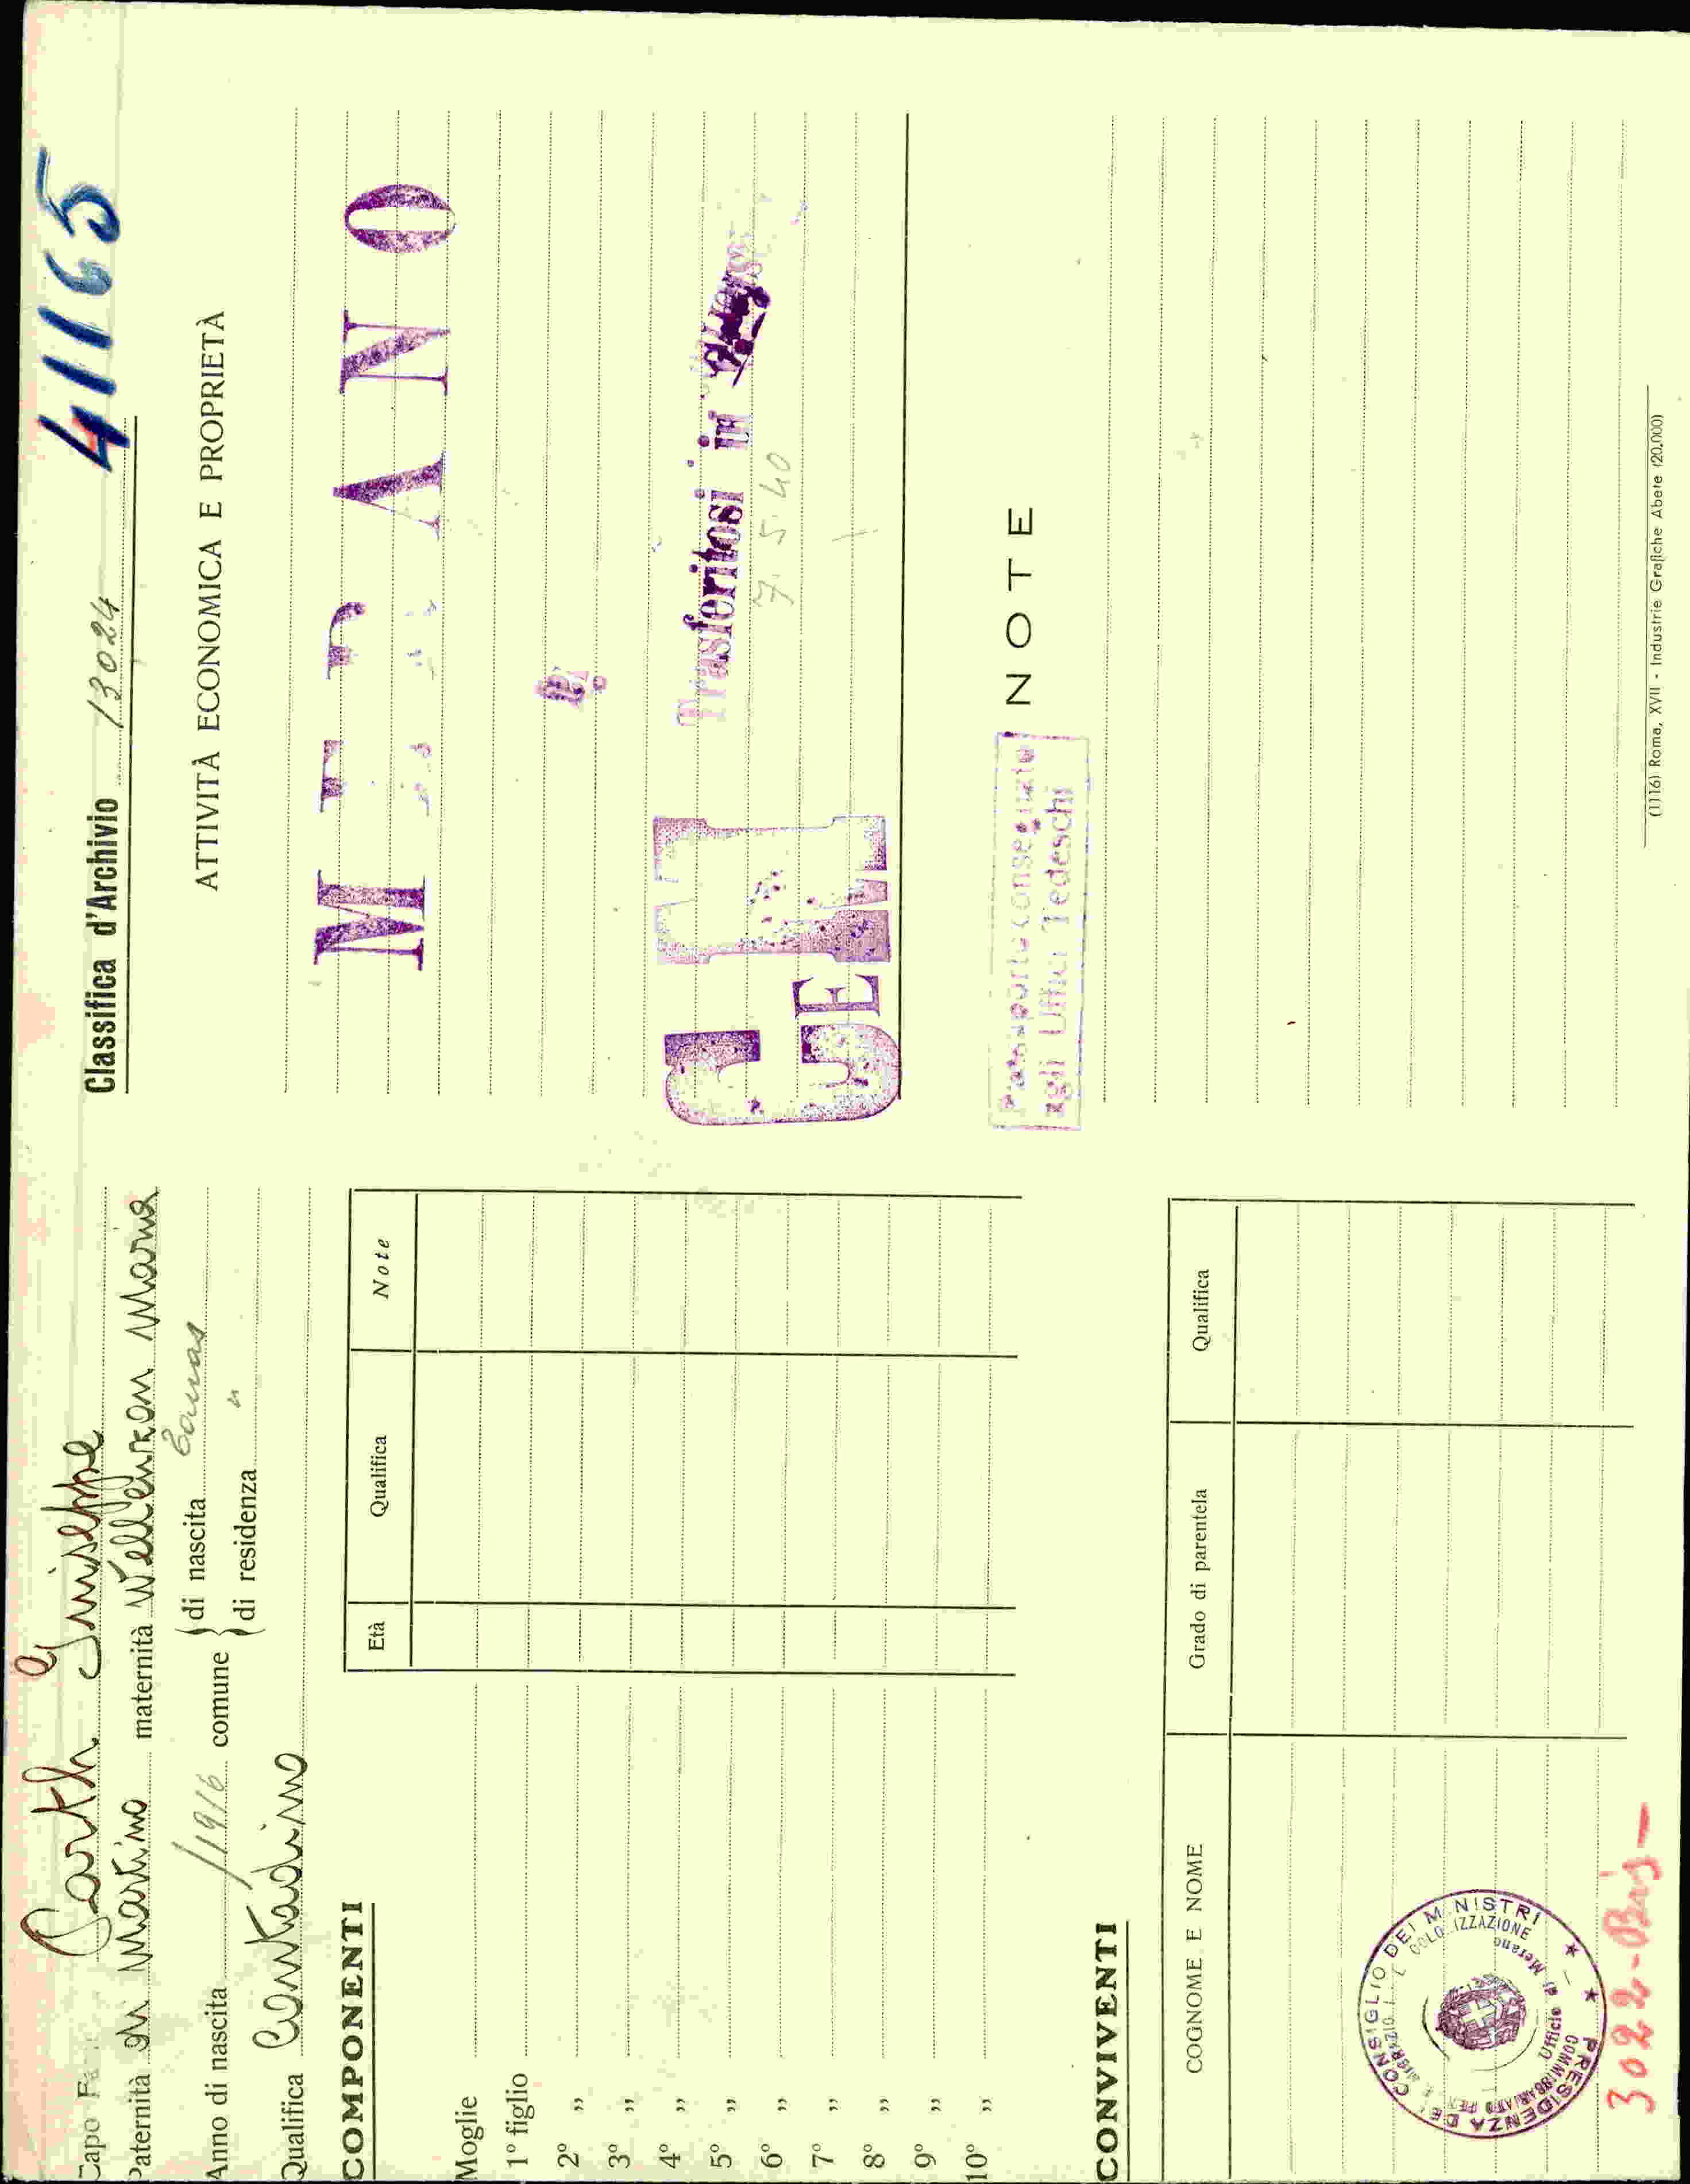 Capo
Parth Giuseppe
Paternità di Martino maternità Wellenzon Maria
Anno di nascita 1916 comune di nascita
di residenza "
Qualifica Contadino
COMPONENTI
Età Qualifica Note
Moglie
1° figlio
2° "
3° "
4° "
5° "
6° "
7° "
8° "
9° "
10° "
CONVIVENTI
COGNOME E NOME Grado di parentela Qualifica
PRESIDENZA DEL CONSIGLIO DEI MINISTRI
Ufficio di Merano
3022-Bis-
Classifica d'Archivio 13024 41165
ATTIVITÀ ECONOMICA E PROPRIETÀ
MERANO
Trasferitosi in
7.5.40
GE
NOTE
Passaporto consegnato
agli Uffici Tedeschi
(1116) Roma, XVII - Industrie Grafiche Abete (20.000)